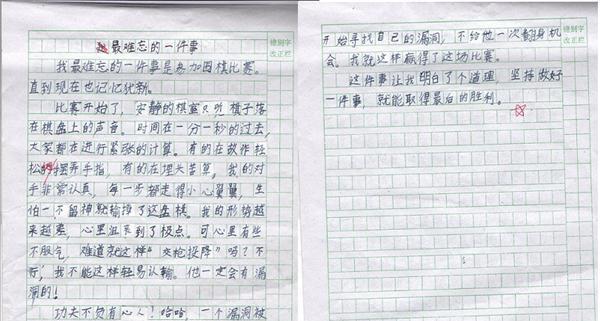 最难忘的一件事
我最难忘的一件事是参加围棋比赛。
直到现在也记忆犹新。
比赛开始了，安静的棋室只听棋子落
在棋盘上的声音。时间在一分一秒的过去，
大家都在进行紧张的计算。有的在故作轻
松的摆弄手指，有的在埋头苦算。我的对
手非常认真，每一步都走得小心翼翼，生
怕一不留神就输掉了这盘棋。我的形势越
来越差，心里沮丧到了极点。可心里有些
不服气，难道就这样“交枪投降”吗？不
行，我不能这样轻易认输。他一定会有漏
洞的！
功夫不负有心人！哈哈，一个漏洞被
错别字
改正栏
开始寻找自己的漏洞，不给他一次翻身机
会。我就这样赢得了这场比赛。
这件事让我明白了个道理，坚持做好
一件事，就能取得最后的胜利。
错别字
改正栏